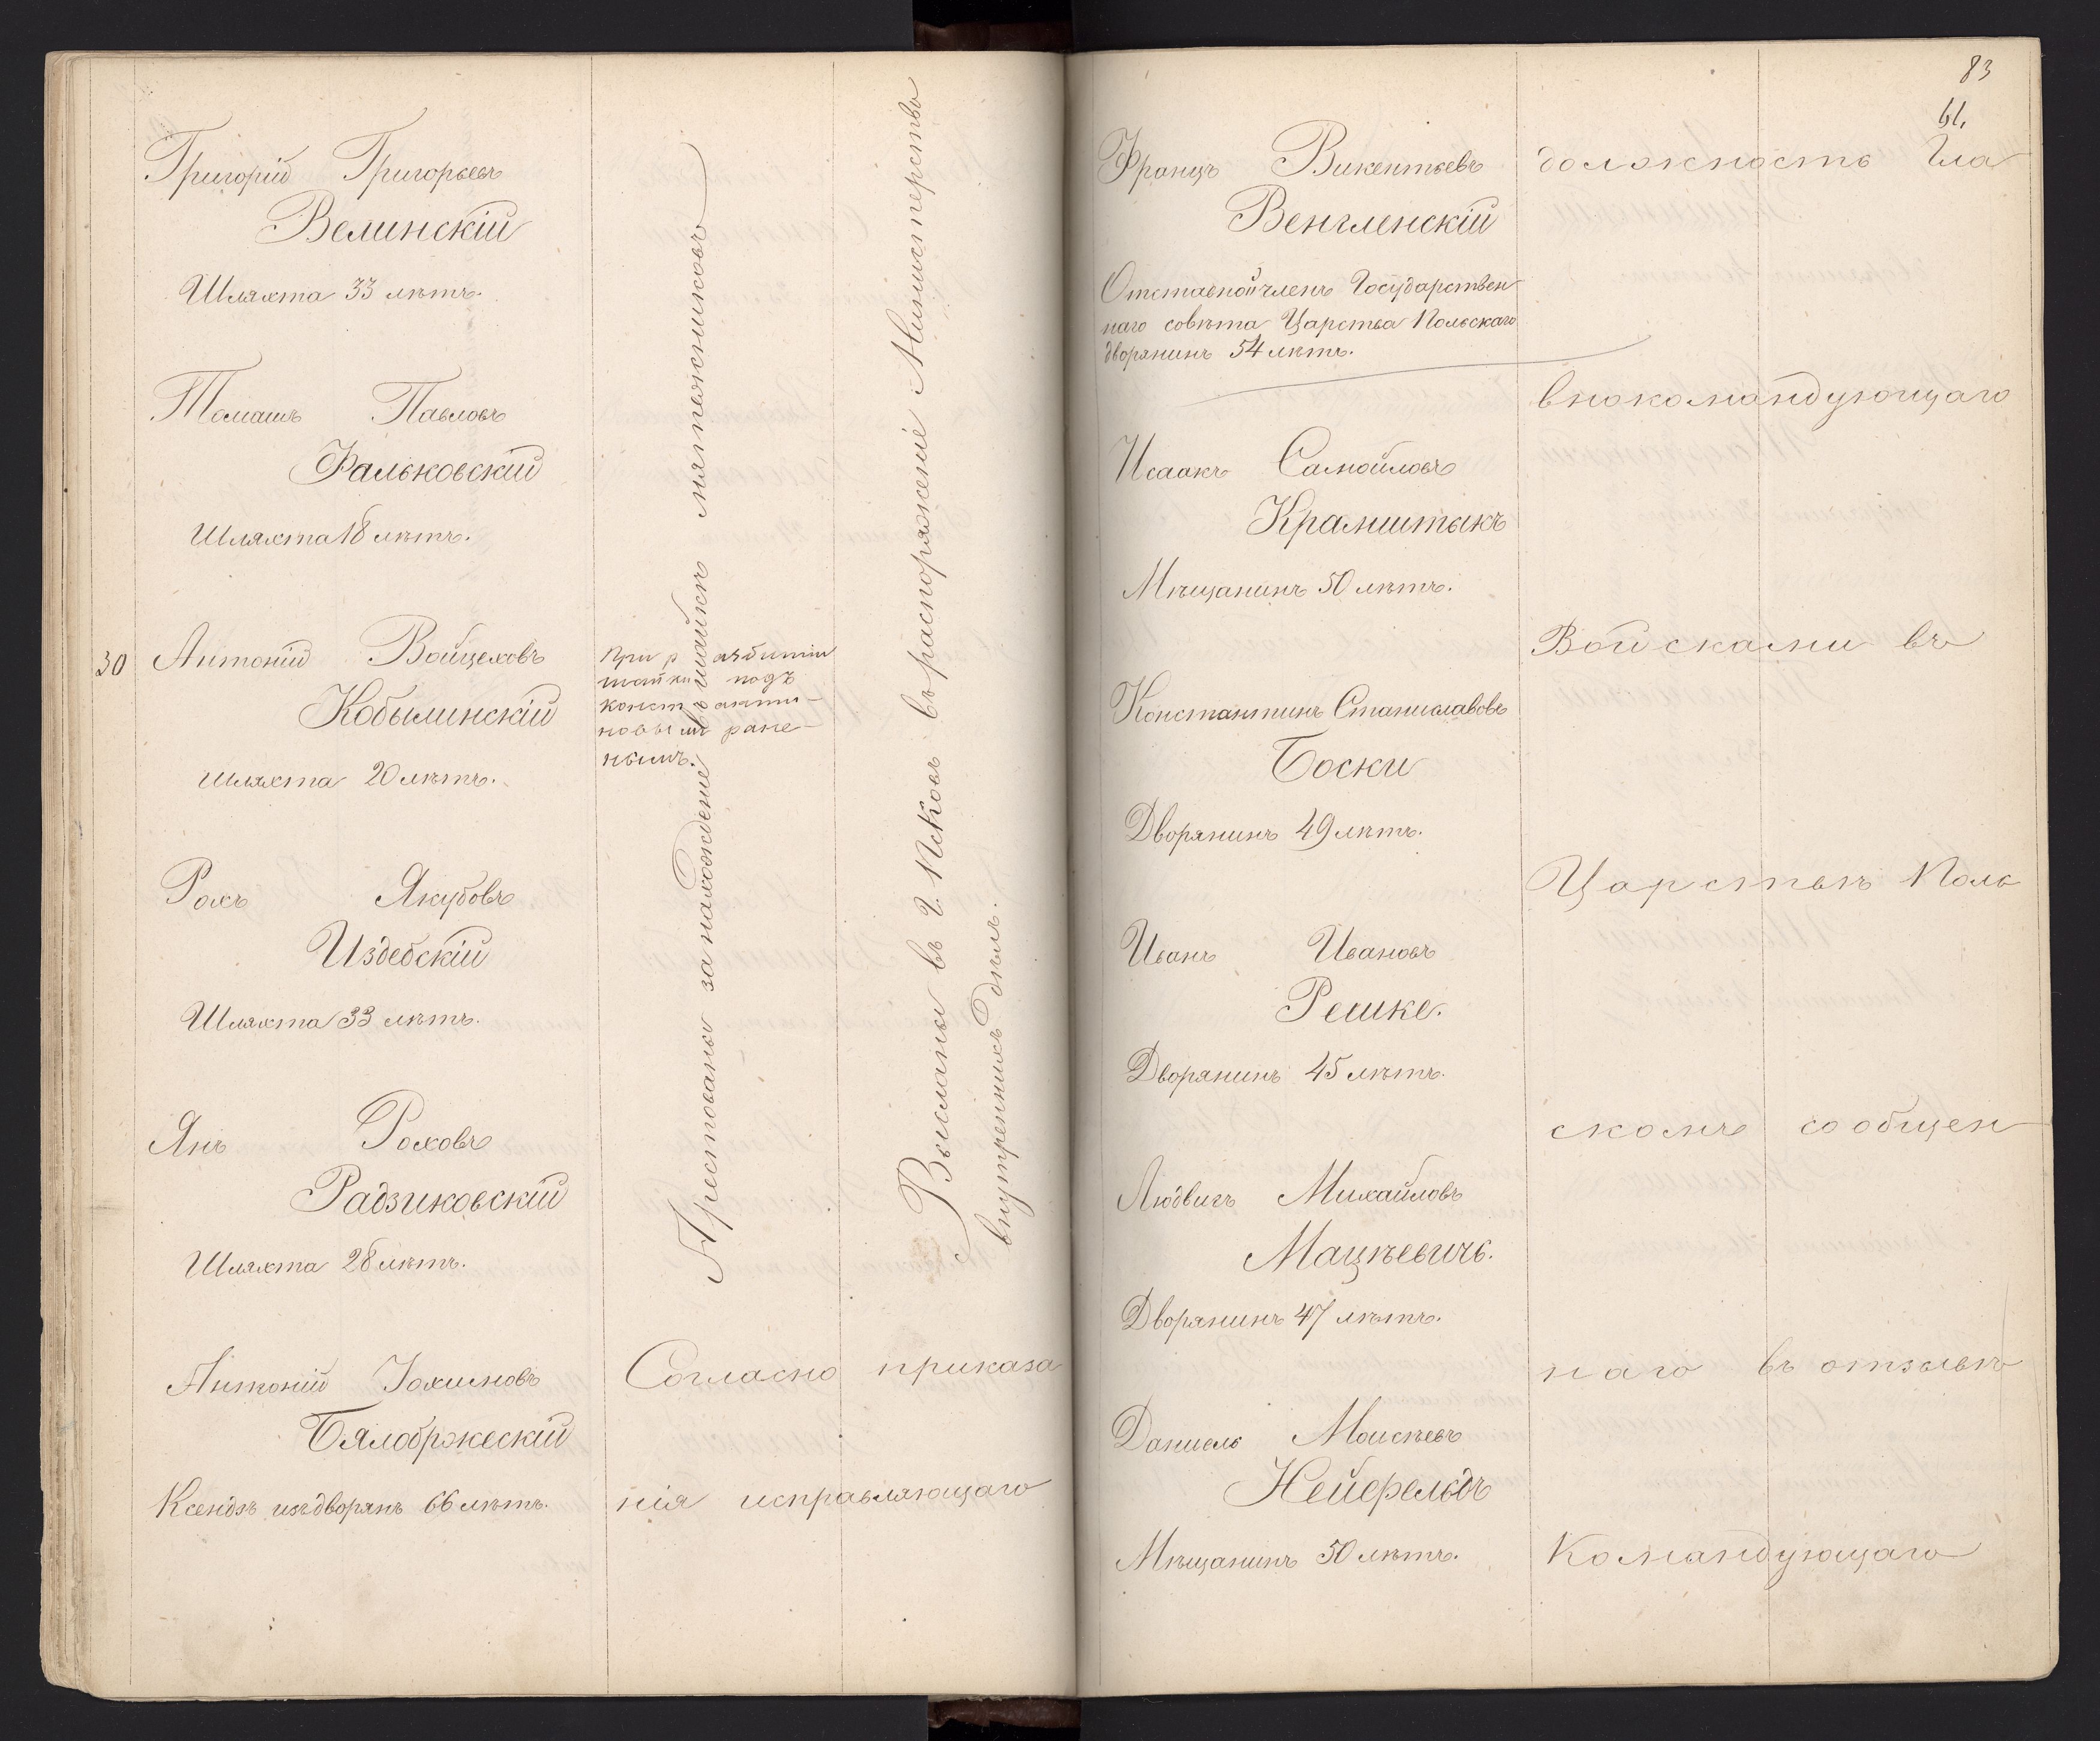 Григорій Григорьевъ
Велинскій
Шляхта 33 лѣтъ.
Томашъ Павловъ
Фальковскій
Шляхта 18 лѣтъ.
30 Антоній Войцеховъ
Кобылинскій
Шляхта 20 лѣтъ.
Рохъ Якубовъ
Издебскій
Шляхта 33 лѣтъ.
Янъ Роховъ
Радзиковскій
Шляхта 28 лѣтъ.
Антоній Іохимовъ
Бялобржескій
Ксендзъ изъ дворянъ 66 лѣтъ.
При разбитіи
шайки подъ
константи-
новымъ ране-
нымъ.
Арестованы за нахожденіе въ шайкѣ мятежниковъ
Высланы въ г. Псковъ въ распоряженіе Министерства
внутреннихъ дѣлъ.
Согласно приказа
нія исправляющаго
83
61.
Францъ Викентьевъ
Венгленскій
Отставной членъ Государствен
наго совѣта Царства Польскаго
дворянинъ 54 лѣтъ.
Исаакъ Самойловъ
Крамштыкъ
Мѣщанинъ 50 лѣтъ.
Константинъ Станиславовъ
Боски
Дворянинъ 49 лѣтъ.
Иванъ Ивановъ
Решке.
Дворянинъ 45 лѣтъ.
Людвигъ Михайловъ
Мацѣевичъ.
Дворянинъ 47 лѣтъ.
Даниель Моисѣевъ
Нейфельдъ
Мѣщанинъ 50 лѣтъ.
должность Гла
внокомандующаго
Войсками въ
Царствѣ Поль
скомъ сообщен
наго въ отзывѣ
Командующаго